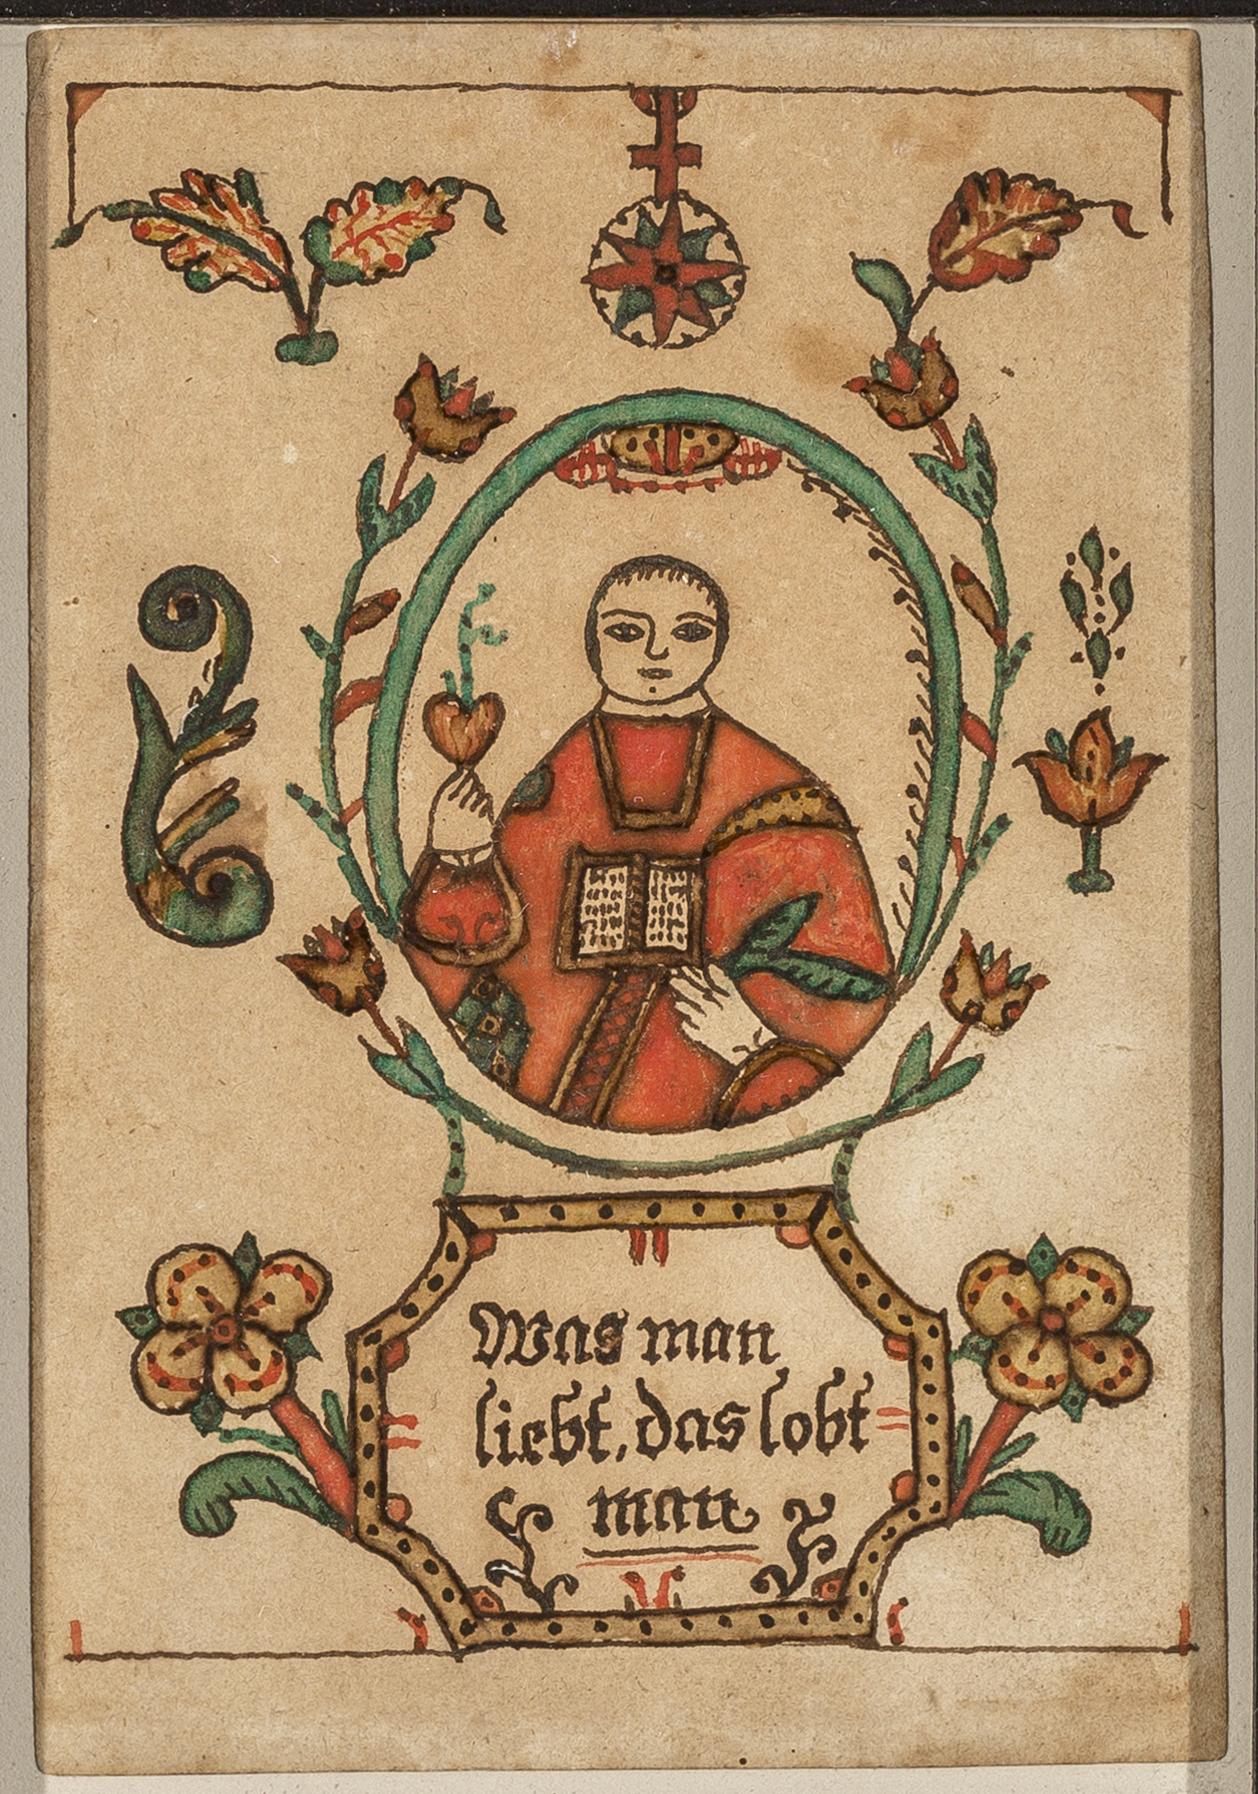 Was man
liebt, das lobt
man